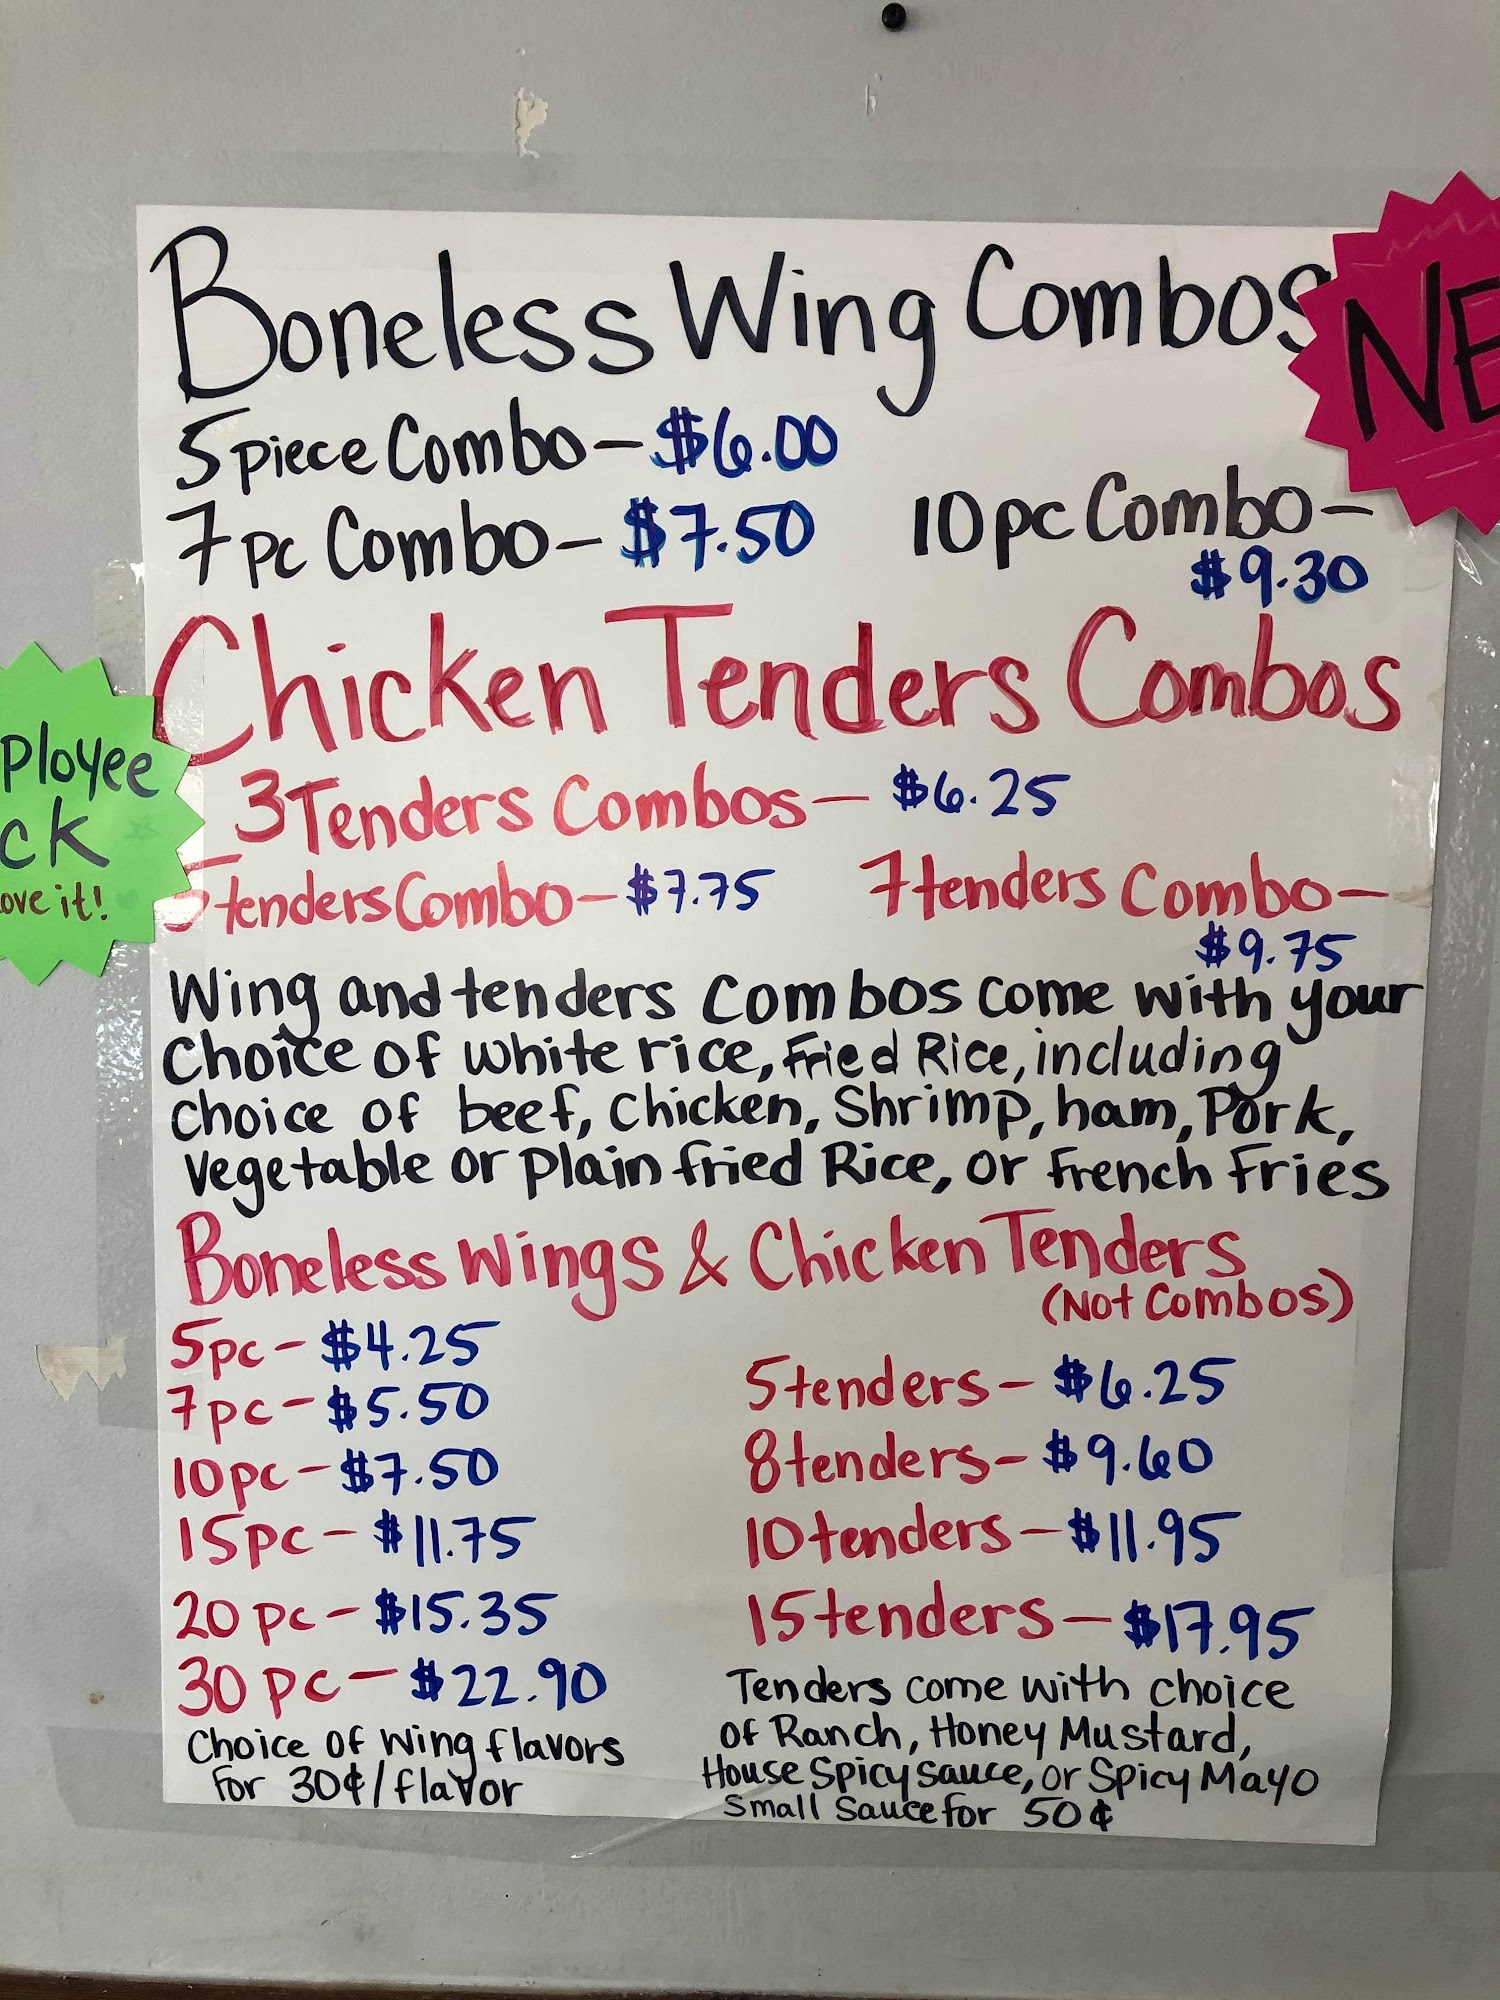 Boneless Wing Combos
NE
5 piece Combo - $6.00
7 pc Combo - $7.50
10 pc Combo -
$9.30
Chicken Tenders Combos
ployee
ck
ove it!
3 Tenders Combos - $6.25
5 tenders Combo - $7.75
7 tenders Combo -
$9.75
Wing and tenders combos come with your
choice of white rice, Fried Rice, including
choice of beef, chicken, Shrimp, ham, Pork,
vegetable or plain fried Rice, or French Fries
Boneless Wings & Chicken Tenders
(Not Combos)
5 pc - $4.25
7 pc - $5.50
10 pc - $7.50
15 pc - $11.75
20 pc - $15.35
30 pc - $22.90
Choice of wing flavors
for 30¢/flavor
5 tenders - $6.25
8 tenders - $9.60
10 tenders - $11.95
15 tenders - $17.95
Tenders come with choice
of Ranch, Honey Mustard,
House Spicy sauce, or Spicy Mayo
Small sauce for 50¢